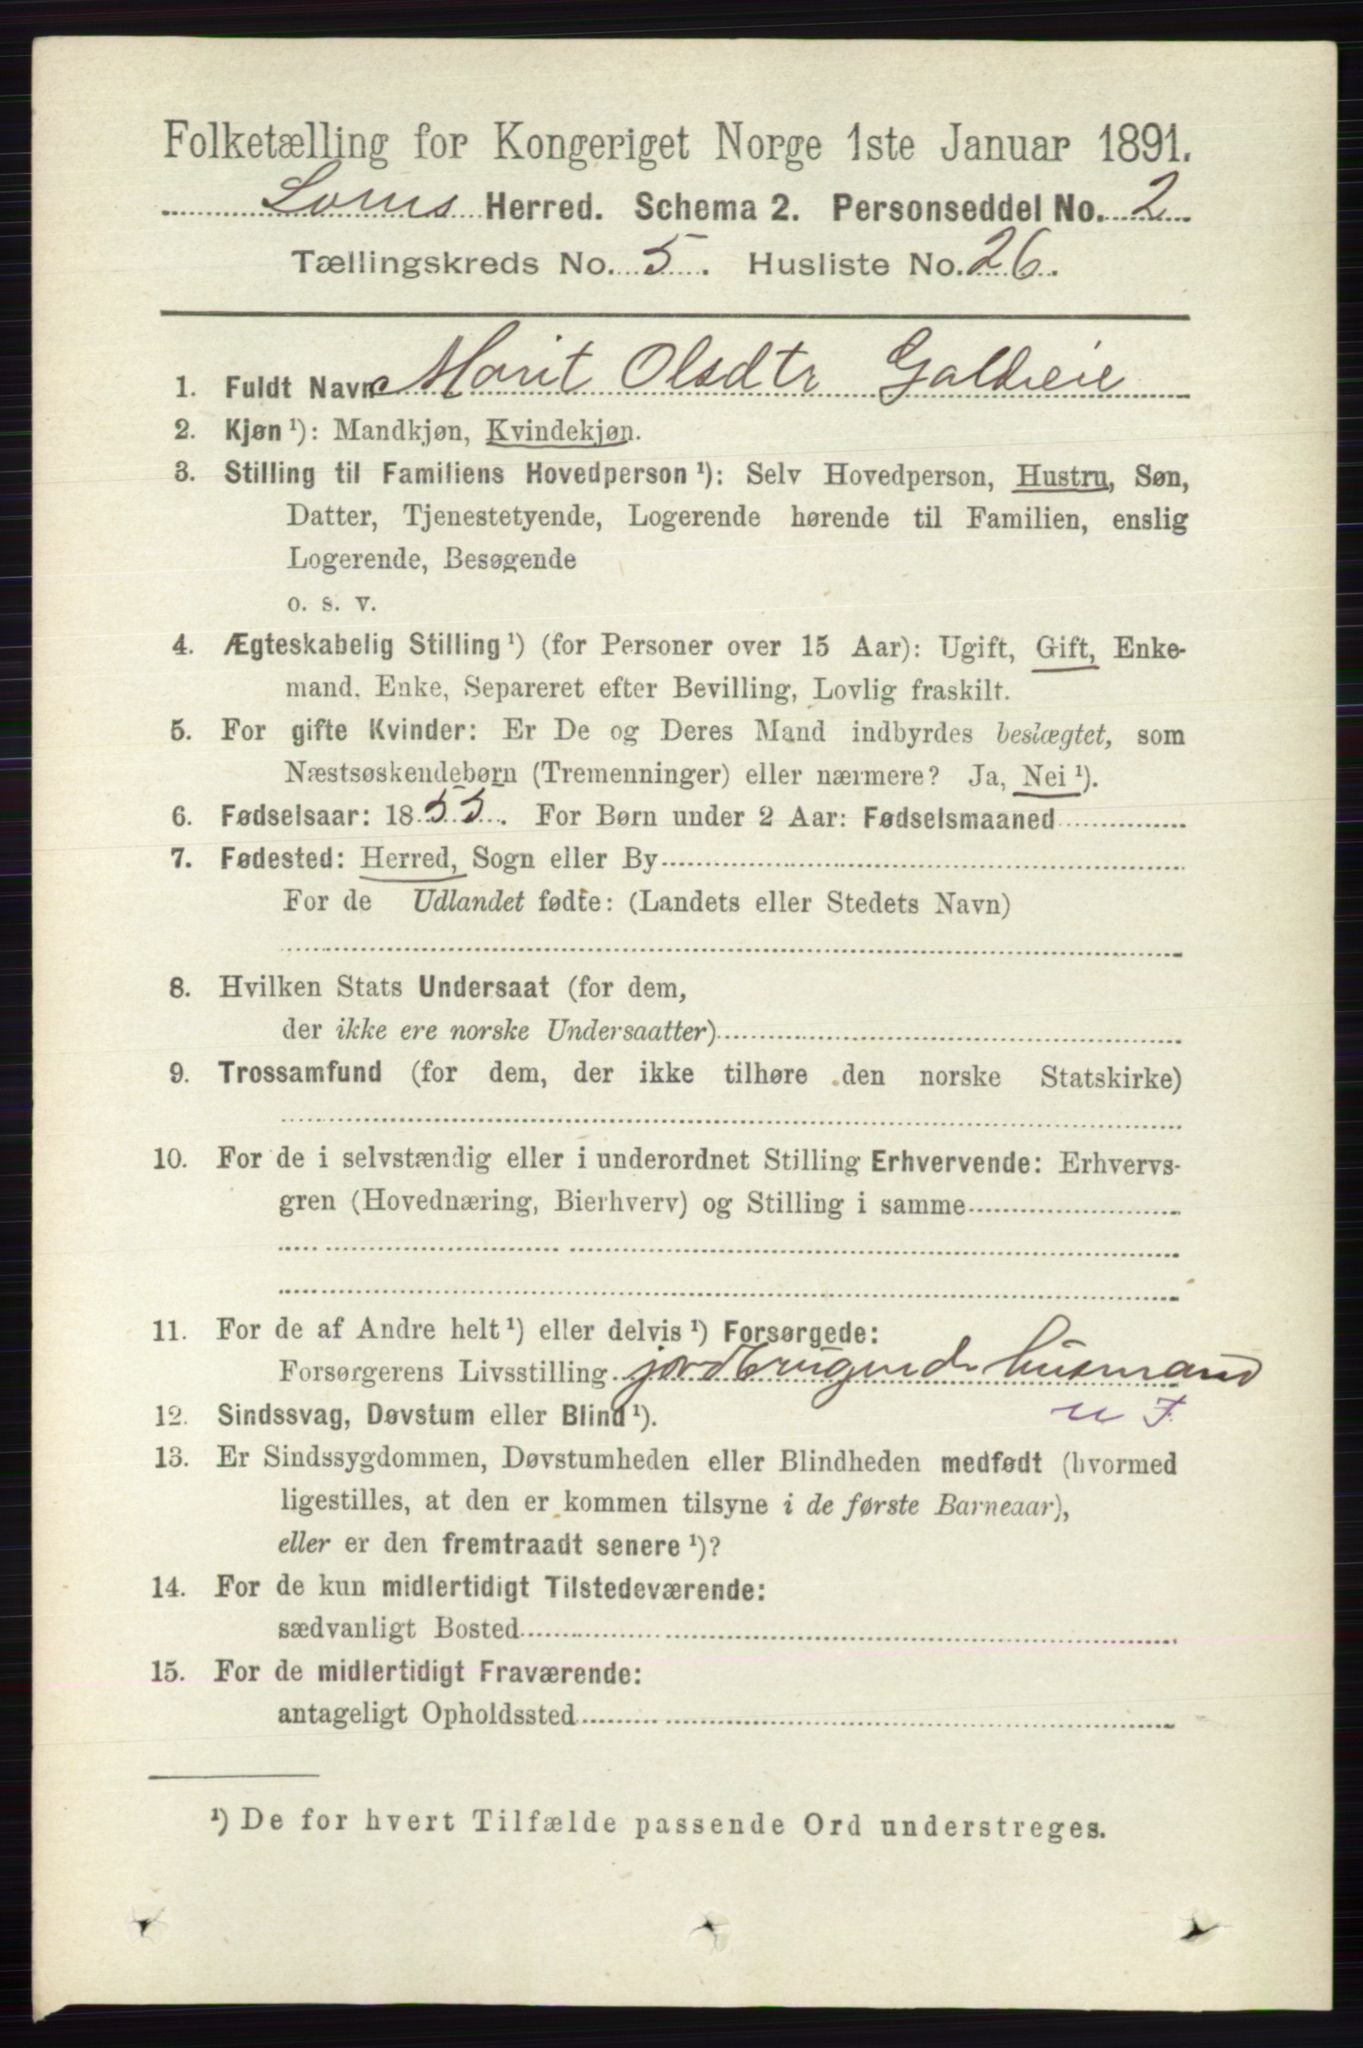 Folketælling for Kongeriget Norge 1ste Januar 1891.
Loms Herred. Schema 2. Personseddel No. 2
Tællingskreds No. 5. Husliste No. 26.
1. Fuldt Navn Marit Olsdtr Galdeeie
2. Kjøn ¹): Mandkjøn, Kvindekjøn.
3. Stilling til Familiens Hovedperson ¹): Selv Hovedperson, Hustru, Søn,
Datter, Tjenestetyende, Logerende hørende til Familien, enslig
Logerende, Besøgende
o. s. v.
4. Ægteskabelig Stilling ¹) (for Personer over 15 Aar): Ugift, Gift, Enke-
mand, Enke, Separeret efter Bevilling, Lovlig fraskilt.
5. For gifte Kvinder: Er De og Deres Mand indbyrdes beslægtet, som
Næstsøskendebørn (Tremenninger) eller nærmere? Ja, Nei ¹).
6. Fødselsaar: 1855. For Børn under 2 Aar: Fødselsmaaned
7. Fødested: Herred, Sogn eller By
For de Udlandet fødte: (Landets eller Stedets Navn)
8. Hvilken Stats Undersaat (for dem,
der ikke ere norske Undersaatter)
9. Trossamfund (for dem, der ikke tilhøre den norske Statskirke)
10. For de i selvstændig eller i underordnet Stilling Erhvervende: Erhvervs-
gren (Hovednæring, Bierhverv) og Stilling i samme
11. For de af Andre helt ¹) eller delvis ¹) Forsørgede:
Forsørgerens Livsstilling jordbrugende husmand
u F.
12. Sindssvag, Døvstum eller Blind ¹).
13. Er Sindssygdommen, Døvstumheden eller Blindheden medfødt (hvormed
ligestilles, at den er kommen tilsyne i de første Barneaar),
eller er den fremtraadt senere ¹)?
14. For de kun midlertidigt Tilstedeværende:
sædvanligt Bosted
15. For de midlertidigt Fraværende:
antageligt Opholdssted
¹) De for hvert Tilfælde passende Ord understreges.